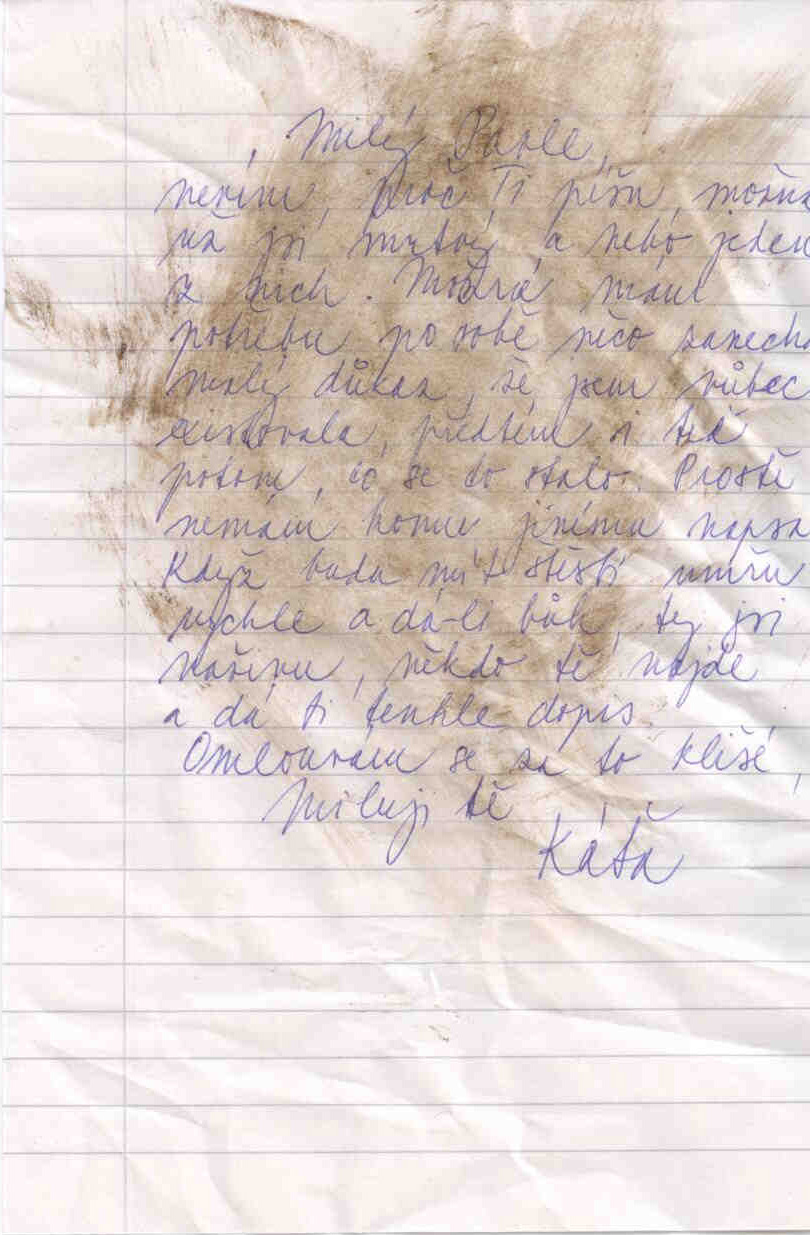 Milý Pavle,
nevím, proč Ti píšu, možná
už jsi mrtvý, a nebo jeden
z nich. Možná mám
potřebu po sobě něco zanecha
malý důkaz, že jsem vůbec
existovala, předtím i
potom, co se to stalo. Prostě
nemám komu jinému napsa
Když budu mít štěstí umřu
rychle a dá-li bůh, ty jsi
naživu, někdo tě najde
a dá ti tenhle dopis
Omlouvám se za to klišé,
Miluji tě
Káťa